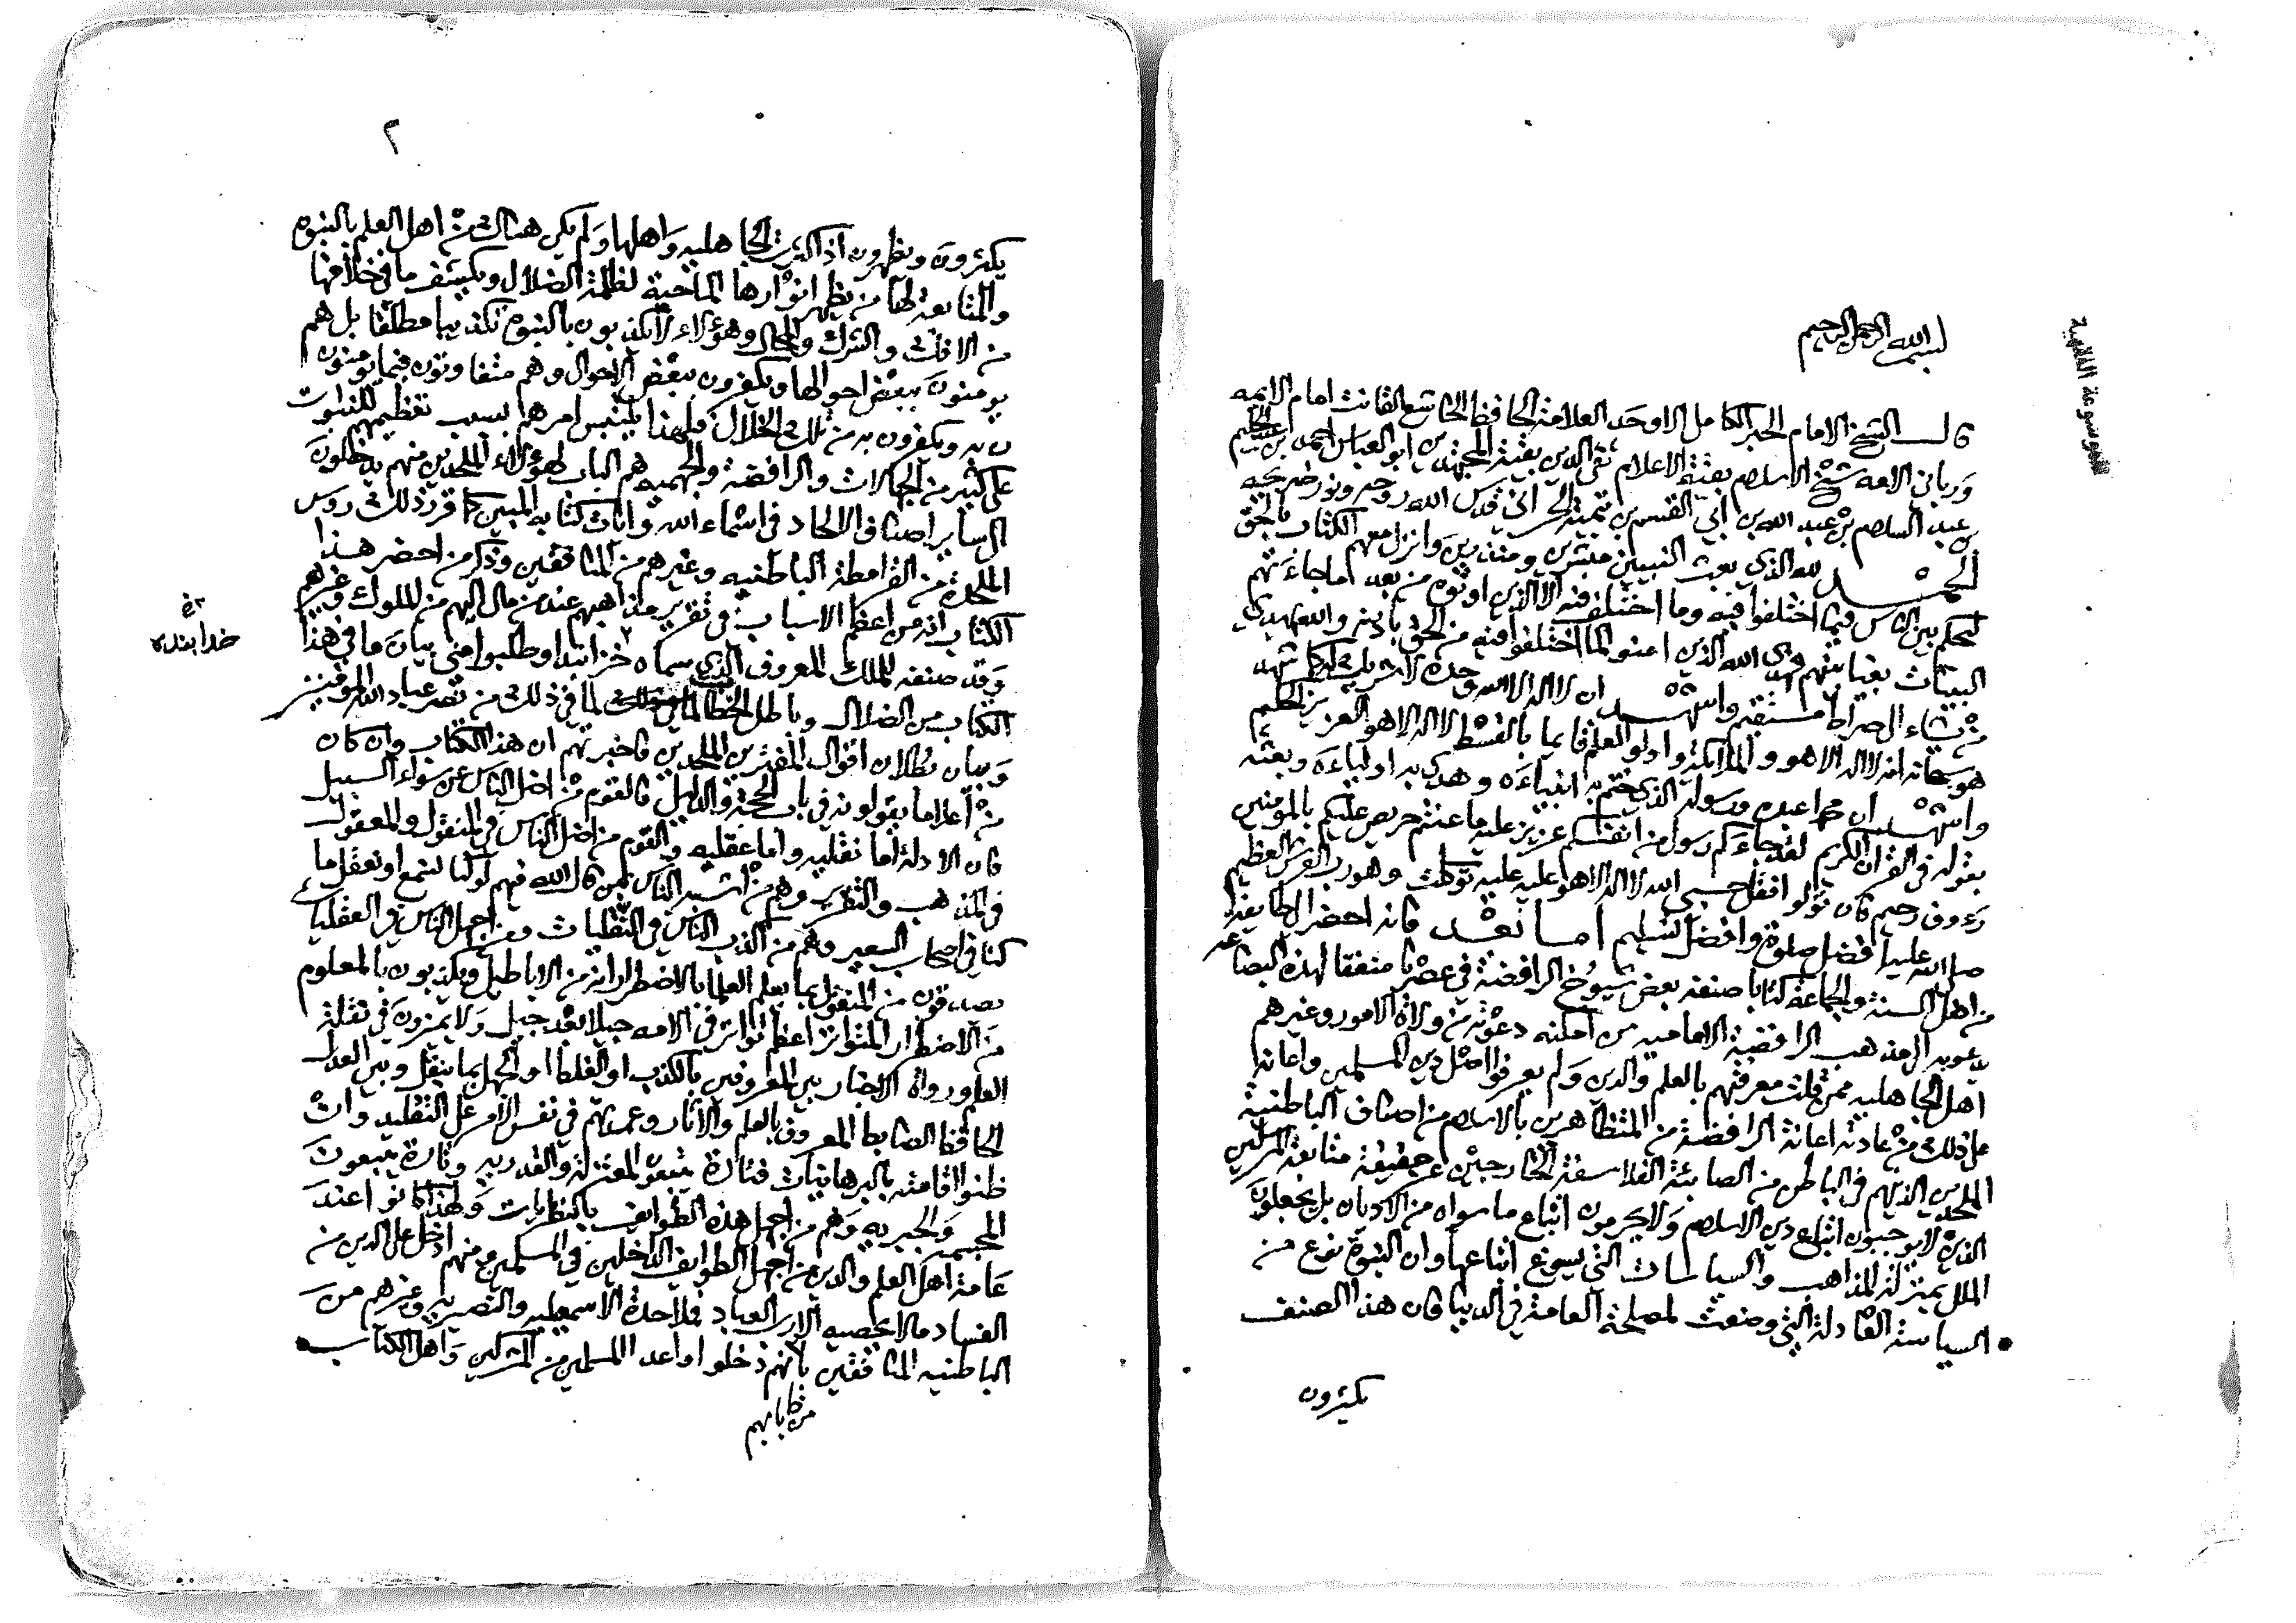 بسم الله الرحمن الرحيم
قال الشيخ الامام الحبر الكامل الاوحد العلامة الحافظ الخاشع القانت امام الائمه
ورباني الامه شيخ الاسلام بقية الاعلام تقي الدين بقية المجتهدين ابو العباس احمد بن عبد الحليم
بن عبد السلام بن عبد الله بن ابي القسم بن تيمية الحراني قدس الله روحه ونور ضريحه
الحمد لله الذي بعث النبيين مبشرين ومنذرين وانزل معهم الكتاب بالحق
ليحكم بين الناس فيما اختلفوا فيه وما اختلف فيه الا الذين اوتوه من بعد ما جاءتهم
البينات بغيا بينهم فهدى الله الذين امنوا لما اختلفوا فيه من الحق باذنه والله يهدي
من يشاء الى صراط مستقيم واشهد ان لا اله الا الله وحده لا شريك له كما شهد
هو سبحانه انه لا اله الا هو والملائكة واولو العلم قايما بالقسط لا اله الا هو العزيز الحكيم
واشهد ان محمدا عبده ورسوله الذي ختم به انبياءه وهدى به اولياءه وبعثه
بقوله في القران الكريم لقد جاءكم رسول من انفسكم عزيز عليه ما عنتم حريص عليكم بالمومنين
رءوف رحيم فان تولوا فقل حسبي الله لا اله الا هو عليه توكلت وهو رب العرش العظيم
صلى الله عليه افضل صلوة وافضل تسليم اما بعد فانه احضر الي طايفة
من اهل السنة والجماعة كتابا صنفه بعض شيوخ الرافضة في عصرنا منفقا لهذه البضاعه
يدعو به الى مذهب الرافضية الامامية من امكنه دعوته من ولاة الامور وغيرهم
اهل الجاهليه ممن قلت معرفتهم بالعلم والدين ولم يعرفوا اصل دين المسلمين واعانه
على ذلك من عادته اعانة الرافضة من المتظاهرين بالاسلام من اصناف الباطنية
الملحدين الذين هم في الباطن من الصابئة الفلاسفة الخارجين عن حقيقة متابعة المرسلين
الذين لا يوجبون اتباع دين الاسلام ولا يحرمون اتباع ما سواه من الاديان بل يجعلون
الملل بمنزلة المذاهب والسياسات التي يسوغ اتباعها وان النبوة نوع من
السياسة العادلة التي وضعت لمصلحة العامة في الدنيا فان هذا الصنف
يكثرون
موسوعة الفقهية
٢
يكثرون ويظهرون اذا كثرت الجاهليه واهلها ولم يكن هناك من اهل العلم بالنبوه
والمتابعة لها من يظهر انوارها الماحية لظلمة الضلال ويكشف ما في خلافها
من الافك والشرك والمحال وهؤلاء لا يكذبون بالنبوه تكذيبا مطلقا بل هم
يومنون ببعض احوالها ويكفرون ببعض الاحوال وهم متفاوتون فيما يومنون
به ويكفرون به من تلك الخلال فلهذا يلتبس امرهم بسبب تعظيمهم للنبوات
على كثير من الجهالات والرافضة والجهميه هم الباب لهؤلاء الملحدين منهم يدخلون
الى ساير اصناف الالحاد في اسماء الله وايات كتابه المبين كما قرر ذلك روس
الملحدة من القرامطة الباطنيه وغيرهم من المنافقين وذكر من احضر هذا
الكتاب انه من اعظم الاسباب في تقرير مذاهبهم عند من مال اليهم من الملوك وغيرهم
وقد صنفه للملك المعروف الذي سماه خرابنده وطلبوا مني بيان ما في هذا
الكتاب من الضلال وباطل الخطاب لما في ذلك من نصر عباد الله المومنين
وبيان بطلان اقوال المفترين الملحدين فاخبرتهم ان هذا الكتاب وان كان
من اعلا ما يقولونه في باب الحجة والدليل فالقوم من اضل الناس عن سواء السبيل
فان الادلة اما نقليه واما عقليه والقوم من اضل الناس في المنقول والمعقول
في المذهب والتقرير وهم من اشبه الناس بمن قال الله فيهم لو كنا نسمع او نعقل ما
كنا في اصحاب السعير وهم من اكذب الناس في النقليات ومن اجهل الناس في العقليات
يصدقون من المنقول بما يعلم العلما بالاضطرار انه من الاباطيل ويكذبون بالمعلوم
من الاضطرار المتواتر اعظم تواتر في الامه جيلا بعد جيل ولا يميزون في نقلة
العلم ورواة الاخبار بين المعروفين بالكذب او الغلط او الجهل بما ينقل وبين العدل
الحافظ الضابط المعروف بالعلم والاثار وعمدتهم في نفس الامر على التقليد وان
ظنوا اقامته بالبرهانيات فتارة يتبعون المعتزلة والقدريه وتارة يتبعون
المجسمة والجبريه وهم من اجهل هذه الطوايف بالنظريات ولهذا كانوا عند
عامة اهل العلم والدين من اجهل الطوايف الداخلين في المسلمين ومنهم ادخل على الدين من
الفساد ما لا يحصيه الا رب العباد فملاحدة الاسمعيليه والنصيريه وغيرهم من
الباطنيه المنافقين بابهم دخلوا واعداء المسلمين من المشركين واهل الكتاب
خدابنده